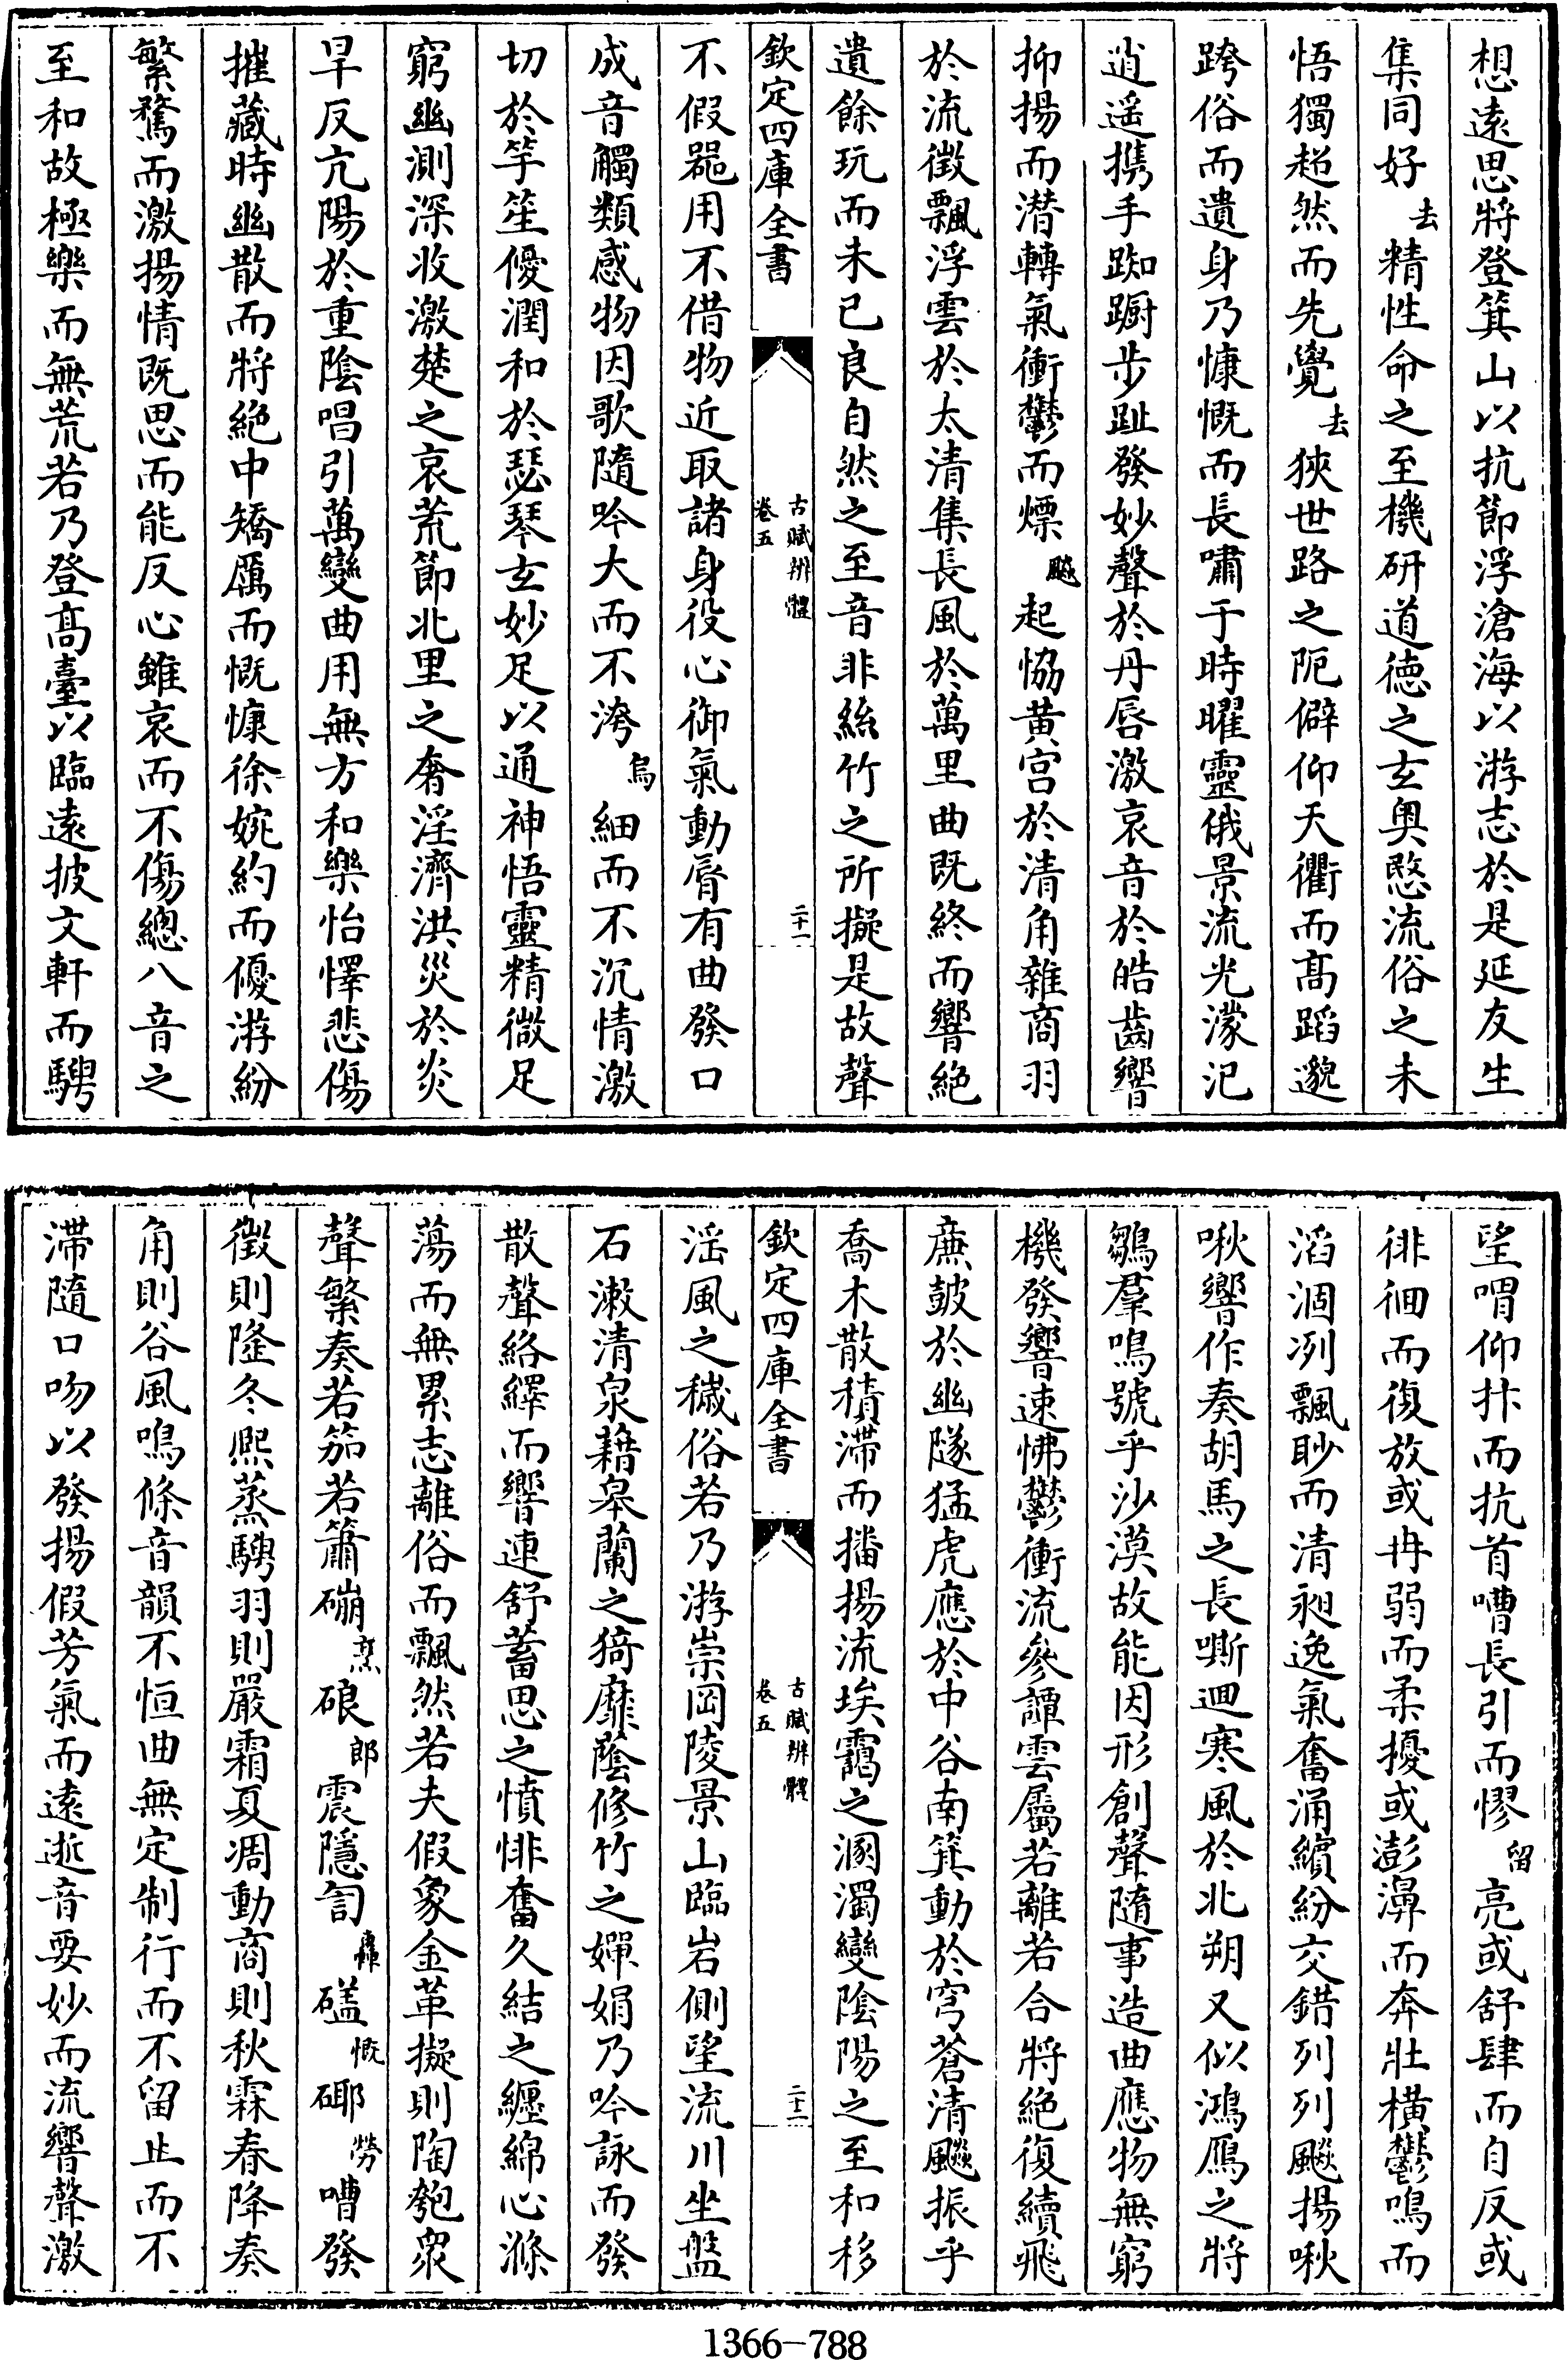 想遠思將登箕山以抗節浮滄海以游志於是延友生
集同好去精性命之至機研道德之玄奥愍流俗之未
悟獨超然而先覺去狹世路之阨僻仰天衢而髙蹈邈
跨俗而遺身乃慷慨而長嘯于時曜靈俄景流光濛汜
逍遥携手踟蹰歩趾發妙聲於丹唇激哀音於皓齒響
抑揚而潜轉氣衝鬱而熛飈起恊黄宫於清角雜商羽
於流徵飄浮雲於太清集長風於萬里曲既終而響絶
遺餘玩而未已良自然之至音非絲竹之所擬是故聲
欽定四庫全書
古賦辨體
卷五
二十一
不假器用不借物近取諸身役心御氣動脣有曲發口
成音觸類感物因歌隨吟大而不洿烏細而不沉情激
切於竽笙優潤和於瑟琴玄妙足以通神悟靈精微足
窮幽測深收激楚之哀荒節北里之奢淫濟洪災於炎
旱反亢陽於重陰唱引萬變曲用無方和樂怡懌悲傷
摧藏時幽散而將絶中矯厲而慨慷徐婉約而優游紛
繁騖而激揚情既思而能反心雖哀而不傷總八音之
至和故極樂而無荒若乃登髙臺以臨遠披文軒而騁
望喟仰抃而抗首嘈長引而憀留亮或舒肆而自反或
徘徊而復放或冉弱而柔擾或澎濞而奔壯橫鬱鳴而
滔涸冽飄眇而清昶逸氣奮涌繽紛交錯列列飈揚啾
啾響作奏胡馬之長嘶迴寒風於北朔又似鴻鴈之將
鶵羣鳴號乎沙漠故能因形創聲隨事造曲應物無窮
機發響速怫鬱衝流參譚雲屬若離若合將絶復續飛
廉鼓於幽隧猛虎應於中谷南箕動於穹蒼清飈振乎
喬木散積滯而播揚流埃靄之溷濁變陰陽之至和移
欽定四庫全書
古賦辨體
卷五
二十二
淫風之穢俗若乃游崇岡陵景山臨岩側望流川坐盤
石漱清泉藉皋蘭之猗靡蔭修竹之嬋娟乃吟詠而發
散聲絡繹而響連舒蓄思之憤悱奮久結之纒綿心滌
蕩而無累志離俗而飄然若夫假象金革擬則陶匏衆
聲繁奏若笳若簫磞烹硠郎震隱訇轟磕慨磟勞嘈發
徵則隆冬熙蒸騁羽則嚴霜夏凋動商則秋霖春降奏
角則谷風鳴條音韻不恒曲無定制行而不留止而不
滯隨口吻以發揚假芳氣而遠逝音要妙而流響聲激
1366-788